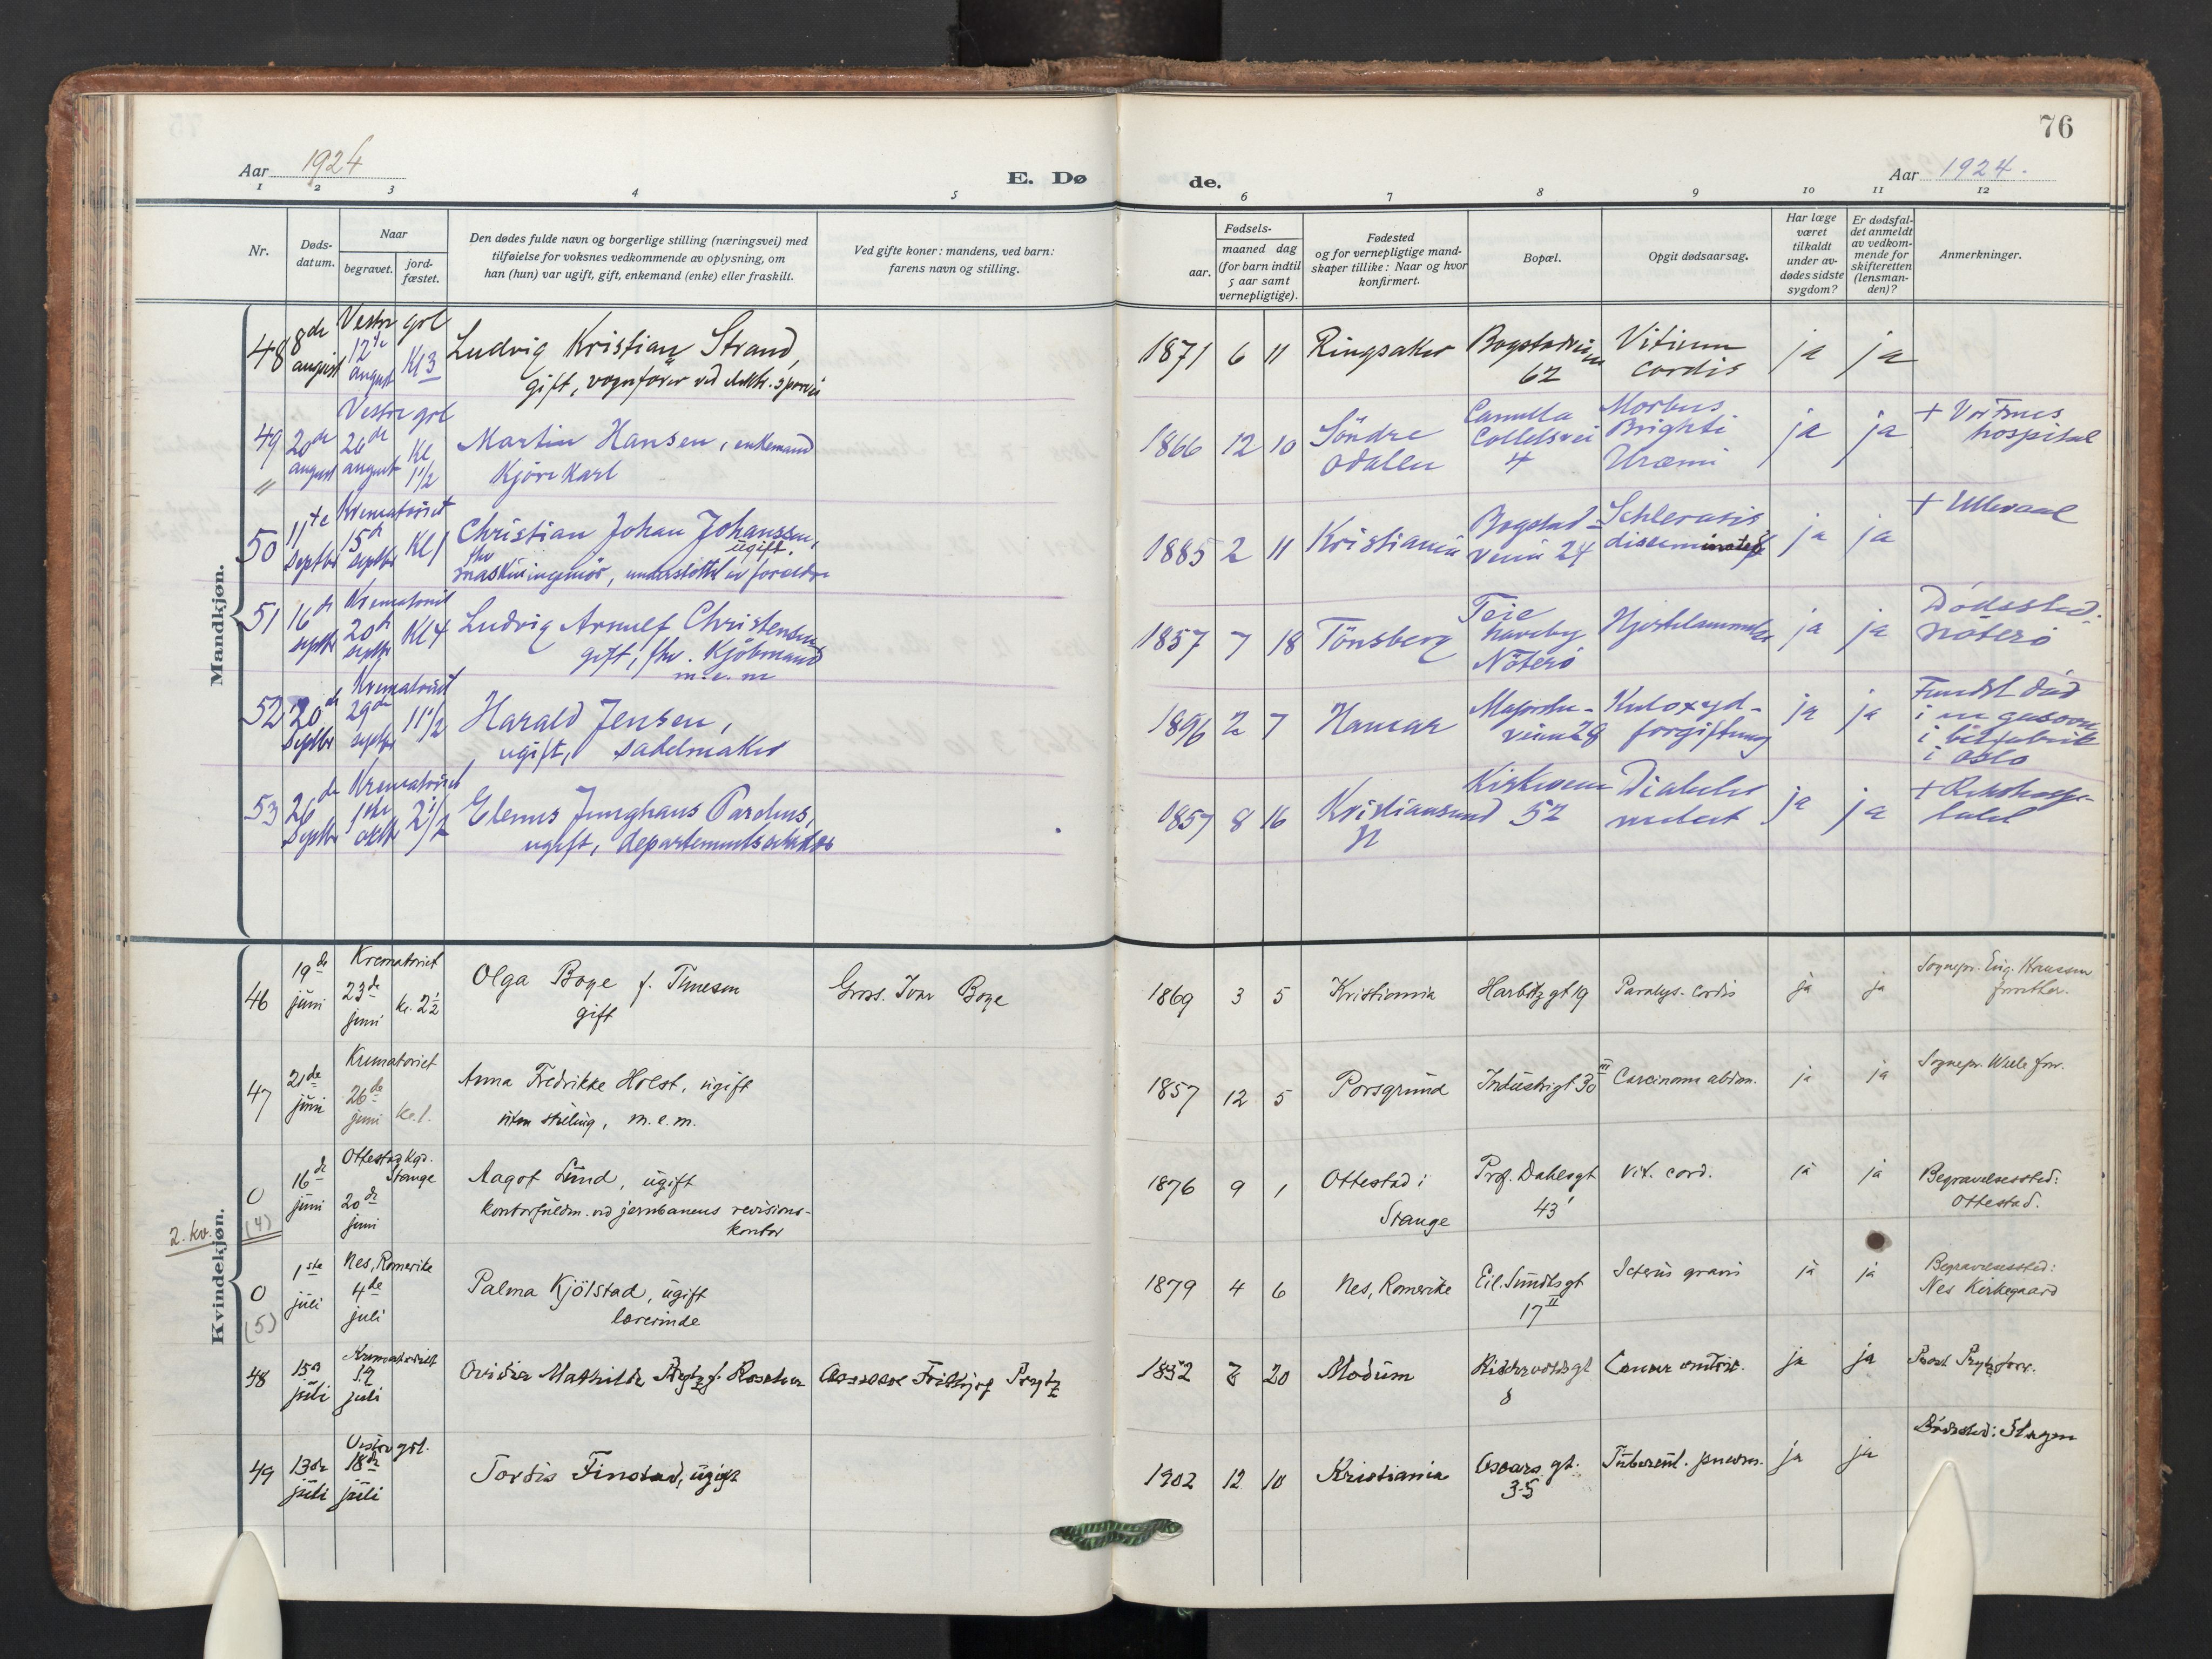 76
Aar 1924
E. Dø
de.
Aar 1924.
1 2 3 4 5 6 7 8 9 10 11 12
Nr.
Døds-
datum.
Naar
begravet.
jord-
fæstet.
Den dødes fulde navn og borgerlige stilling (næringsvei) med
tilføielse for voksnes vedkommende av oplysning, om
han (hun) var ugift, gift, enkemand (enke) eller fraskilt.
Ved gifte koner: mandens, ved barn:
farens navn og stilling.
aar.
Fødsels-
maaned dag
(for barn indtil
5 aar samt
vernepligtige).
Fødested
og for vernepligtige mand-
skaper tillike: Naar og hvor
konfirmert.
Bopæl.
Opgit dødsaarsag.
Har læge
været
tilkaldt
under av-
dødes sidste
sygdom?
Er dødsfal-
det anmeldt
av vedkom-
mende for
skifteretten
(lensman-
den)?
Anmerkninger.
Mandkjøn.
48 8de august
Vestre grl
12te august Kl 3
Ludvig Kristian Strand,
gift, vognfører ved elektr. sporvei
1871 6 11 Ringsaker
Bogstadveien
62
Vitium
cordis
ja ja
49 20de august
Vestre grl
26de august Kl 1 1/2
Martin Hansen, enkemand
Kjørekarl
1866 12 10 Söndre
Odalen
Camilla
Colletsvei
4
Morbus
Brighti
Uræmi
ja ja
+ Vor Frues
hospital
50 11te Septbr
Krematoriet
15de septbr Kl 1
Christian Johan Johanssen,
ugift.
fhv
maskiningeniör, understöttet av foreldre
1885 2 11 Kristiania
Bogstad-
veien 24
Schlerosis
disseminata
ja ja
+ Ullevaal
51 16de septbr
Krematoriet
20de septbr Kl 4
Ludvig Arnulf Christensen
gift, fhv. Kjöbmand
m.e.m
1857 7 18 Tönsberg
Teie
haveby
Nöterö
Hjertelammelse
ja ja
Dödssted:
Nöterö
52 20de Septbr
Krematoriet
29de septbr 11 1/2
Harald Jensen,
ugift, sadelmaker
1896 2 7 Hamar
Majorstu-
veien 28
Kuloxyd-
forgiftning
ja ja
Fundet död
i en gasovn
i bilfabrik
i Oslo
53 26de Septbr
Krematoriet
1ste oktbr 2 1/2
Elenus Junghans Parelius,
ugift, departementssekretær
1857 8 16 Kristiansund
N
Kirkeveien
52
Diabetes
melert
ja ja
+ Rikshospi-
talet
Kvindekjøn.
46 19de juni
Krematoriet
23de juni kl. 2 1/2
Olga Boye f. Tinesen
gift
Gross. Ivar Boye
1869 3 5 Kristiania Harbitzgt 19 Paralys. Cordis ja ja
Sognepr. Eug. Hanssen
forrettet.
47 21de juni
Krematoriet
26de juni Kl. 1.
Anna Fredrikke Holst, ugift
uten stilling, m.e.m.
1857 12 5 Porsgrund Industrigt 30 III Carcinoma abdom. ja ja
Sognepr. Wille forr.
2. kv.
0
(4)
16de juni
Ottestad Kgd.
Stange
20de juni
Aagot Lund, ugift
Kontorfuldm. ved jernbanens revisions-
kontor
1876 9 1 Ottestad i
Stange
Prof. Dahlsgt
43 I
Vit. cord. ja ja
Begravelsessted:
Ottestad.
0
(5)
1ste juli
Nes, Romerike
4de juli
Palma Kjölstad, ugift
lærerinde
1879 4 6 Nes, Romerike
Eil. Sundtsgt
17 II
Icterus gravis ja ja
Begravelsessted:
Nes Kirkegaard
48 15de juli
Krematoriet
19 juli
Ovidia Mathilde Prytz f.
Assessor Fridtjof Prytz
1832 20 Modum
Riddervoldsgt
8
Cancer ja ja
Prytz forr.
49 13de juli
Vestre grl.
18de juli
Tordis Finstad, ugift
1902 12 10 Kristiania
Oscars gt.
35
Tuberkul. pneum. ja ja
Dödssted: Slagen